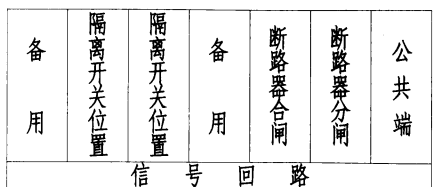 备用
隔离开关位置
隔离开关位置
备用
断路器合闸
断路器分闸
公共端
信号回路